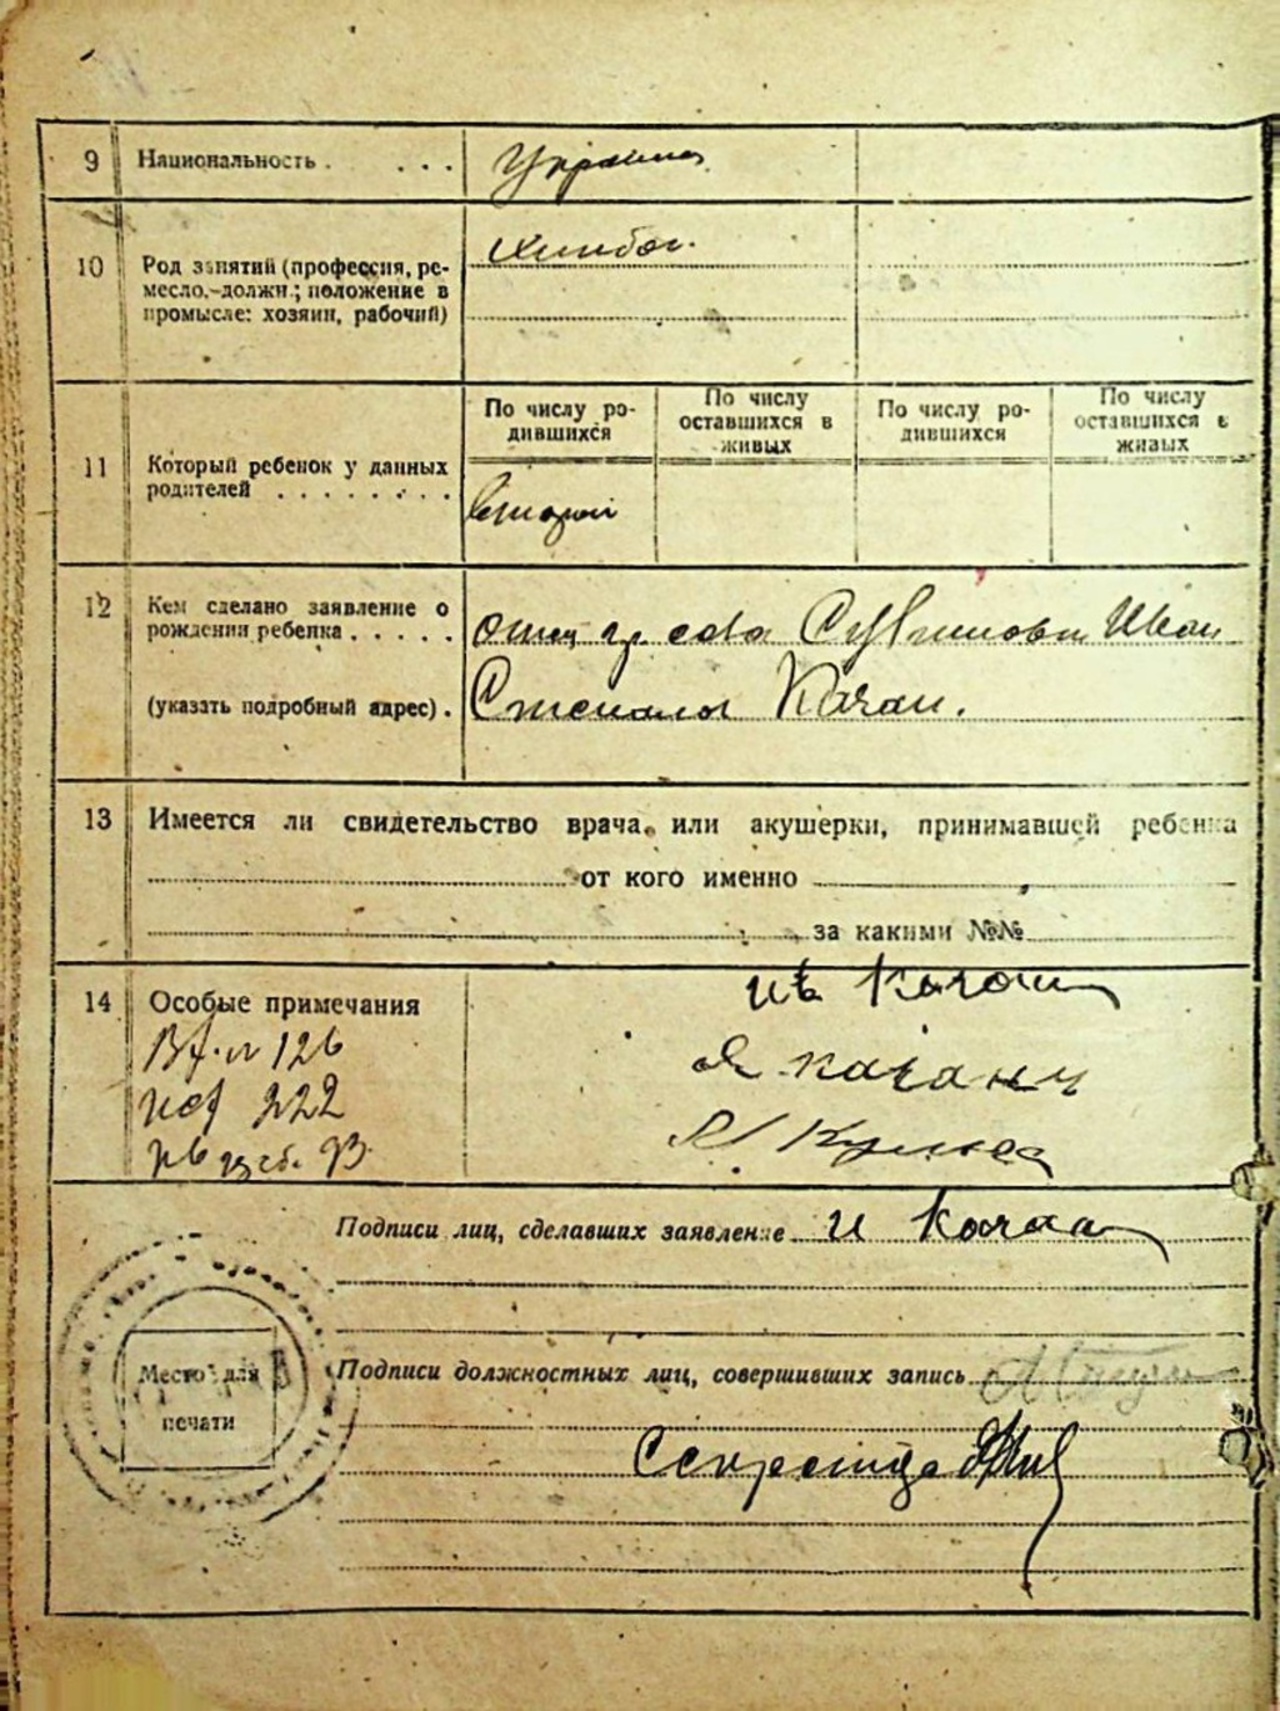 9 Национальность . . . . Украинец
10 Род занятий (профессия, ре-
месло.-должн.; положение в
промысле: хозяин, рабочий)
Хлебог.
11 Который ребенок у данных
родителей . . . . . . . .
По числу ро-
дившихся
По числу
оставшихся в
живых
По числу ро-
дившихся
По числу
оставшихся в
живых
второй
12 Кем сделано заявление о
рождении ребенка . . . . .
(указать подробный адрес) .
отец гр. села Иван
Степанов Качан.
13 Имеется ли свидетельство врача или акушерки, принимавшей ребенка
от кого именно
за какими №№
14 Особые примечания
126
222
Ив Качан
Я Качан
Подписи лиц, сделавших заявление И Качан
Место для
печати
Подписи должностных лиц, совершивших запись
Секретарь